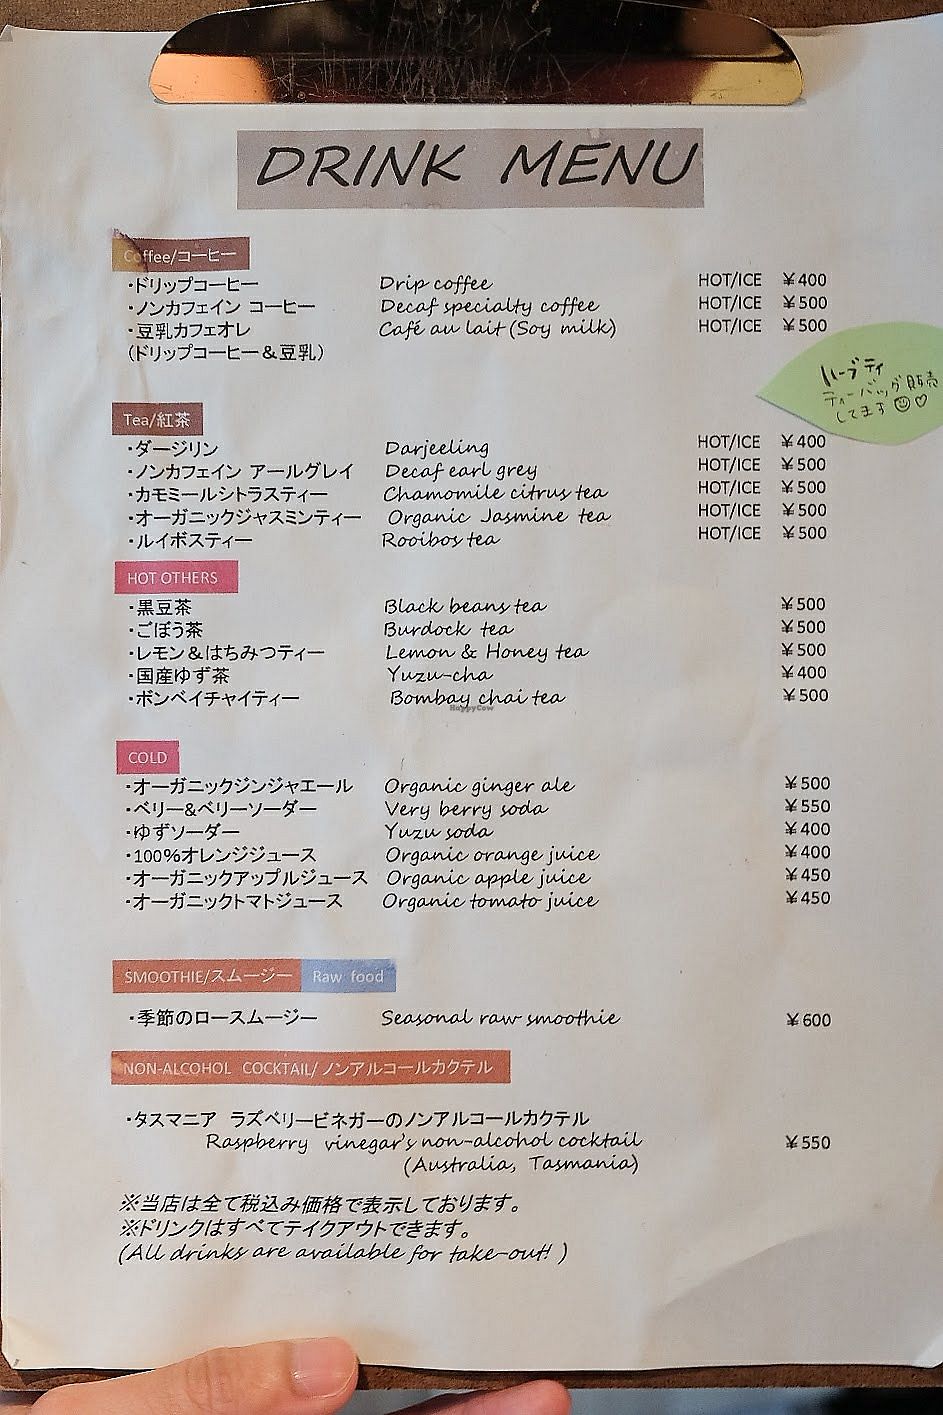 DRINK MENU
Coffee/コーヒー
・ドリップコーヒー Drip coffee HOT/ICE ¥400
・ノンカフェイン コーヒー Decaf specialty coffee HOT/ICE ¥500
・豆乳カフェオレ Café au lait (Soy milk) HOT/ICE ¥500
(ドリップコーヒー＆豆乳)
ハーブティ
ティーバッグ販売
してます
Tea/紅茶
・ダージリン Darjeeling HOT/ICE ¥400
・ノンカフェイン アールグレイ Decaf earl grey HOT/ICE ¥500
・カモミールシトラスティー Chamomile citrus tea HOT/ICE ¥500
・オーガニックジャスミンティー Organic Jasmine tea HOT/ICE ¥500
・ルイボスティー Rooibos tea HOT/ICE ¥500
HOT OTHERS
・黒豆茶 Black beans tea ¥500
・ごぼう茶 Burdock tea ¥500
・レモン＆はちみつティー Lemon & Honey tea ¥500
・国産ゆず茶 Yuzu-cha ¥400
・ボンベイチャイティー Bombay chai tea ¥500
HappyCow
COLD
・オーガニックジンジャエール Organic ginger ale ¥500
・ベリー&ベリーソーダー Very berry soda ¥550
・ゆずソーダー Yuzu soda ¥400
・100%オレンジジュース Organic orange juice ¥400
・オーガニックアップルジュース Organic apple juice ¥450
・オーガニックトマトジュース Organic tomato juice ¥450
SMOOTHIE/スムージー Raw food
・季節のロースムージー Seasonal raw smoothie ¥600
NON-ALCOHOL COCKTAIL/ノンアルコールカクテル
・タスマニア ラズベリービネガーのノンアルコールカクテル
Raspberry vinegar's non-alcohol cocktail ¥550
(Australia, Tasmania)
※当店は全て税込み価格で表示しております。
※ドリンクはすべてテイクアウトできます。
(All drinks are available for take-out! )